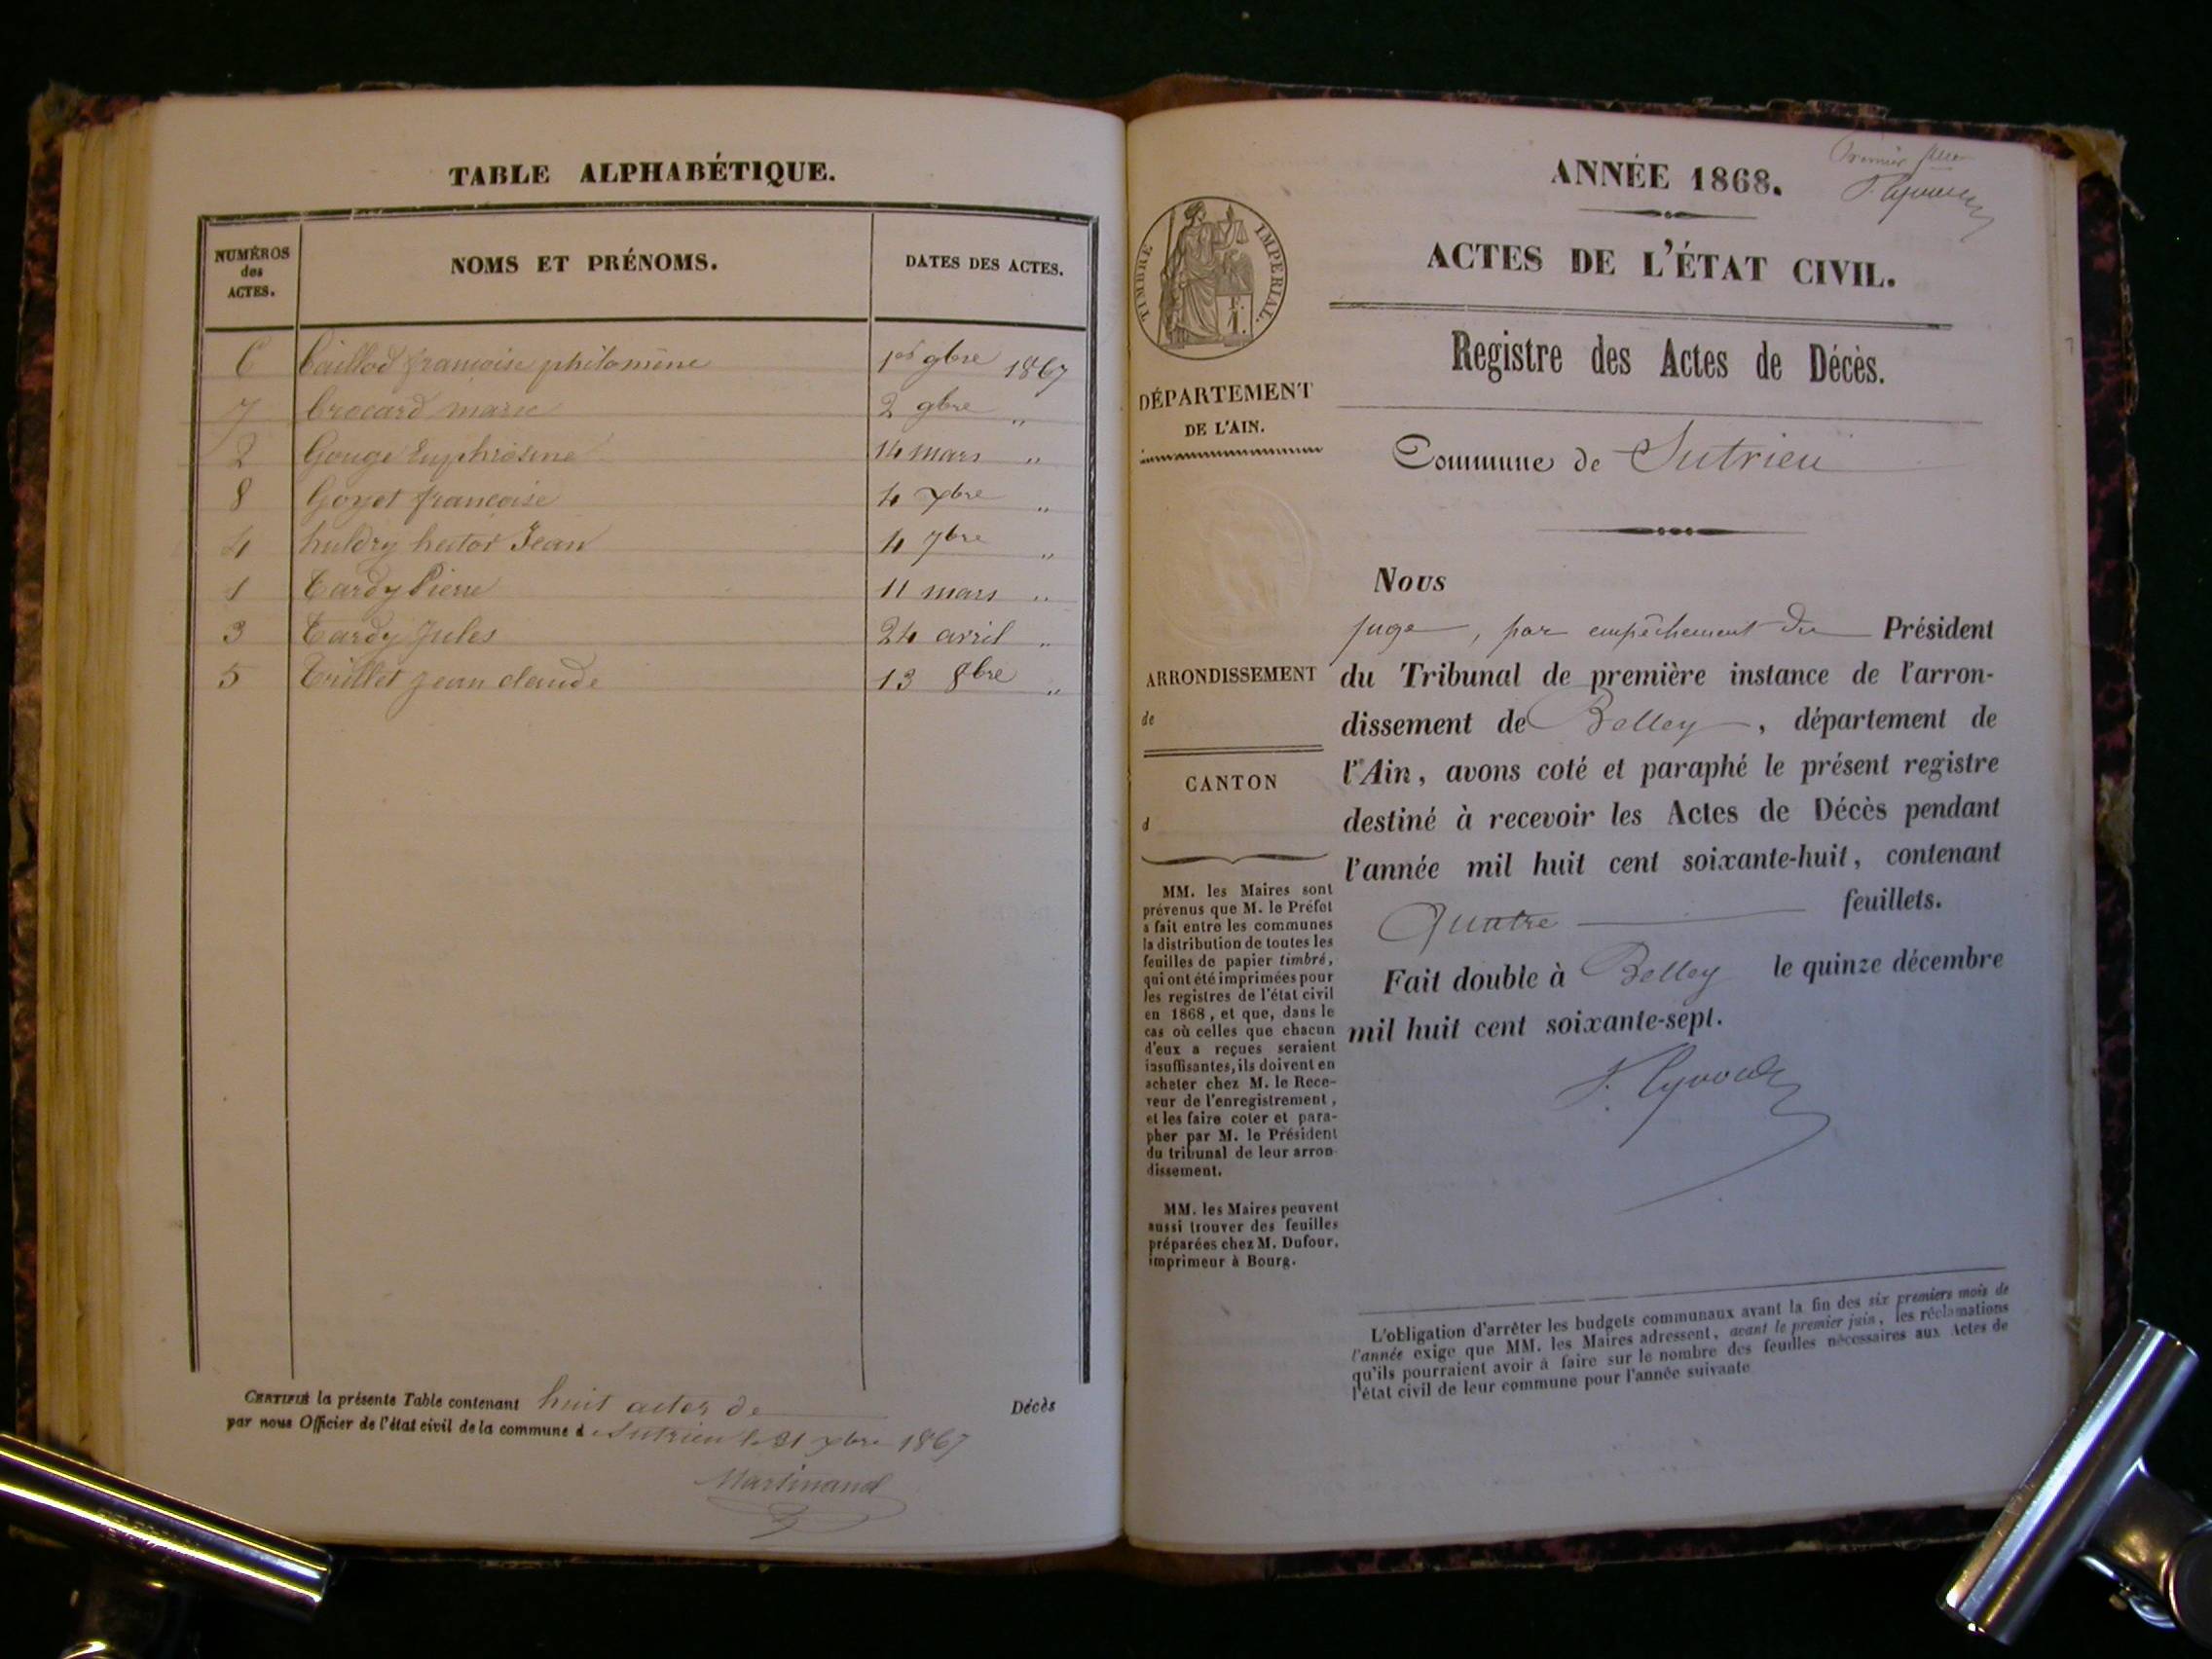 TABLE ALPHABÉTIQUE.
NUMÉROS
des
ACTES.
NOMS ET PRÉNOMS.
DATES DES ACTES.
6 Caillod françoise philomène 1er 9bre 1867
7 Crocard marie 2 9bre "
2 Gouge Euphrosine 14 mars "
8 Goyet françoise 4 xbre "
4 huldry hector Jean 4 7bre "
1 Tardy Pierre 11 mars "
3 Tardy Jules 24 avril "
5 Trillet jean claude 13 8bre "
CERTIFIÉ la présente Table contenant huit actes de Décès
par nous Officier de l'état civil de la commune d Sutrieu le 31 xbre 1867
Martinand
Premier
ANNÉE 1868.
ACTES DE L'ÉTAT CIVIL.
Registre des Actes de Décès.
Commune de Sutrieu
TIMBRE IMPERIAL.
DÉPARTEMENT
DE L'AIN.
ARRONDISSEMENT
de
CANTON
d
MM. les Maires sont
prévenus que M. le Préfet
a fait entre les communes
la distribution de toutes les
feuilles de papier timbré,
qui ont été imprimées pour
les registres de l'état civil
en 1868, et que, dans le
cas où celles que chacun
d'eux a reçues seraient
insuffisantes, ils doivent en
acheter chez M. le Rece-
veur de l'enregistrement,
et les faire coter et para-
pher par M. le Président
du tribunal de leur arron-
dissement.
MM. les Maires peuvent
aussi trouver des feuilles
préparées chez M. Dufour,
imprimeur à Bourg.
Nous
juge, par empêchement du Président
du Tribunal de première instance de l'arron-
dissement de Belley, département de
l'Ain, avons coté et paraphé le présent registre
destiné à recevoir les Actes de Décès pendant
l'année mil huit cent soixante-huit, contenant
Quatre feuillets.
Fait double à Belley le quinze décembre
mil huit cent soixante-sept.
L'obligation d'arrêter les budgets communaux avant la fin des six premiers mois de
l'année exige que MM. les Maires adressent, avant le premier juin, les réclamations
qu'ils pourraient avoir à faire sur le nombre des feuilles nécessaires aux Actes de
l'état civil de leur commune pour l'année suivante